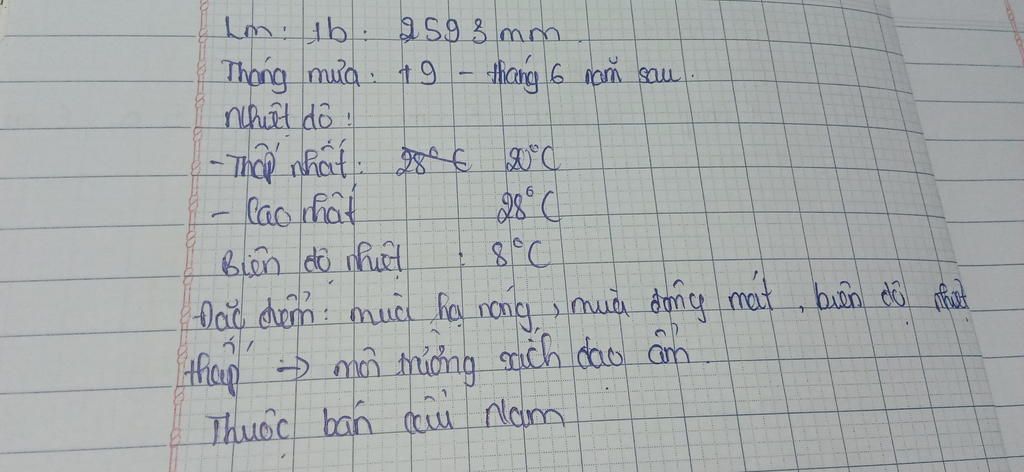 Lm: 1b: 2593 mm.
Tháng mưa: t9 - tháng 6 năm sau.
Nhiệt độ:
- Thấp nhất: 28°C 20°C
- Cao nhất 28°C
Biên độ nhiệt : 8°C
Đặc điểm: mùa hạ nóng, mùa đông mát, biên độ nhiệt
thấp => môi trường xích đạo ẩm.
Thuộc bán cầu Nam